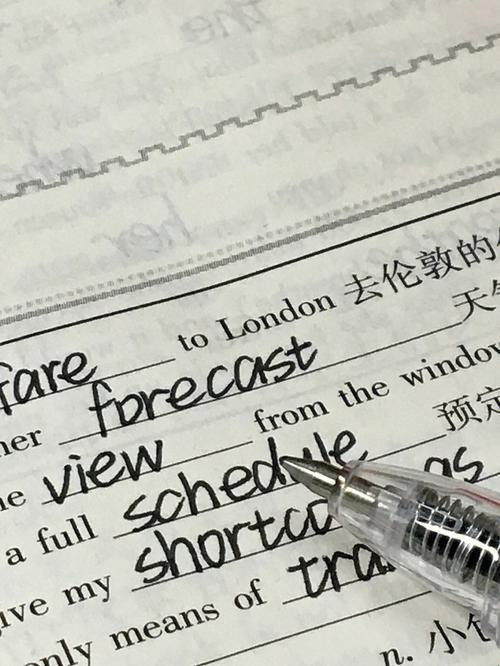 fare to London 去伦敦的
forecast 天气
view from the window
a full schedule 预定
my shortco as
only means of tra
n. 小